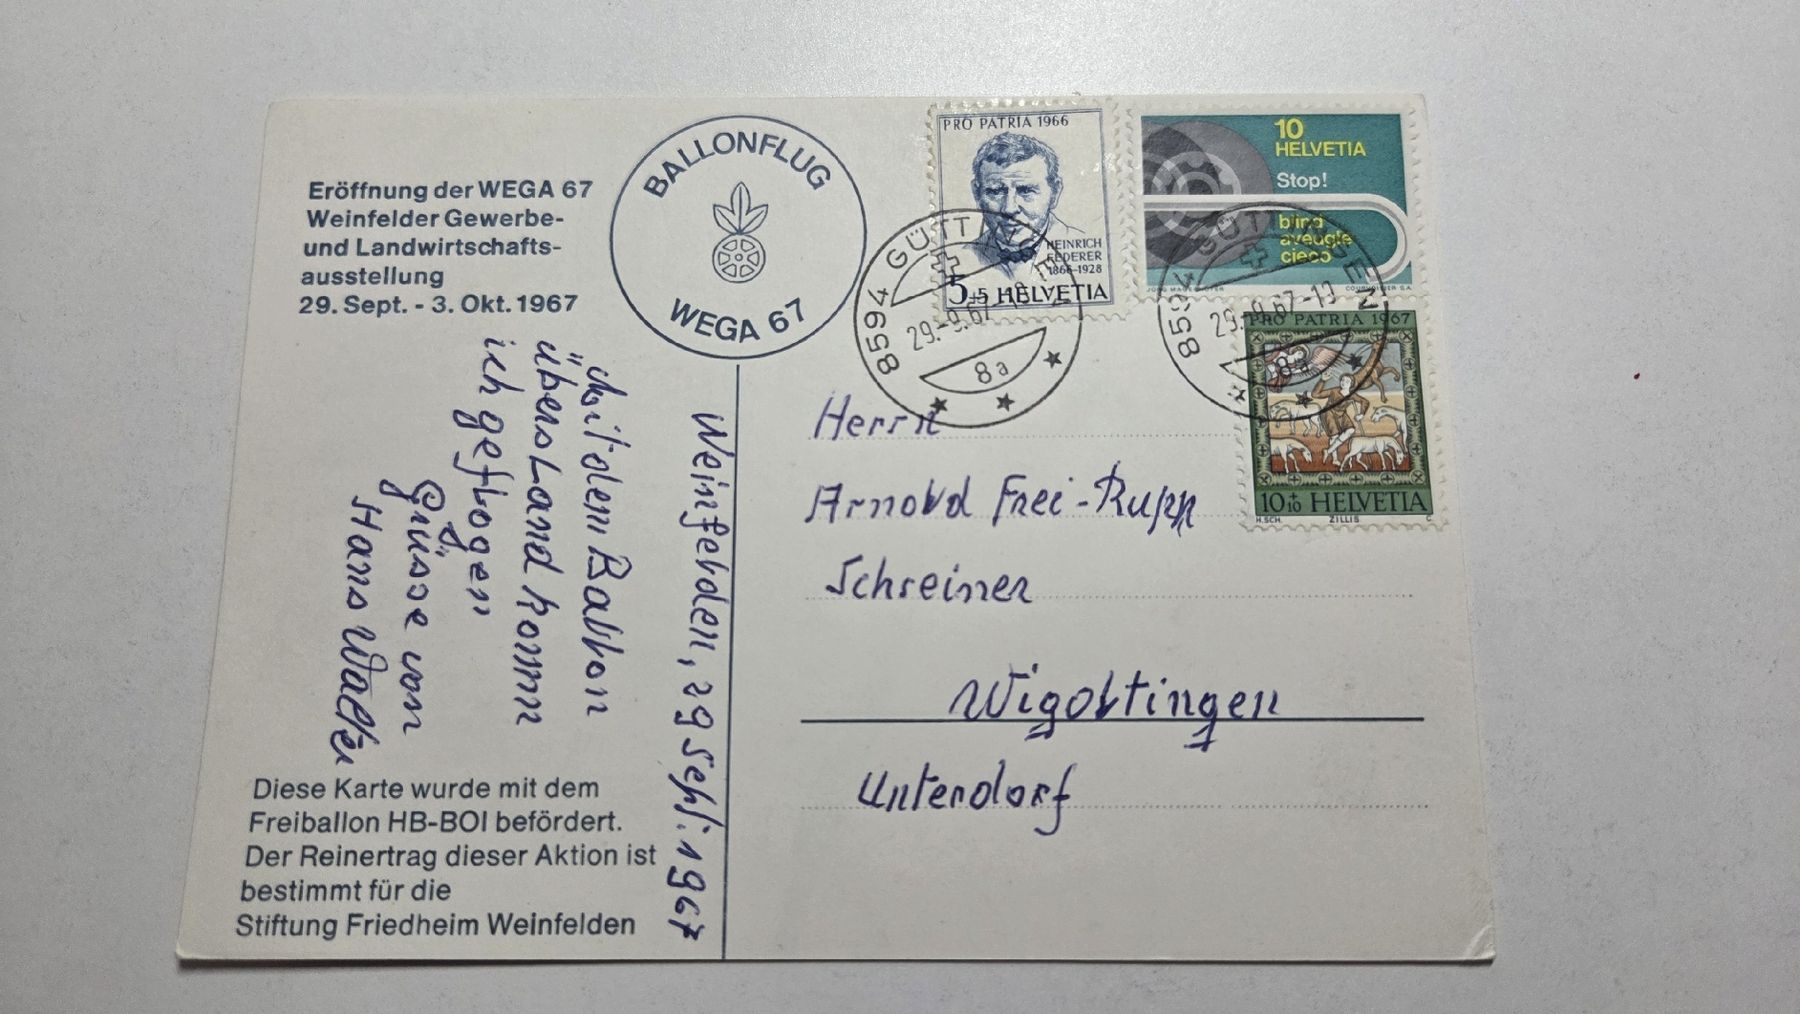 Eröffnung der WEGA 67
Weinfelder Gewerbe-
und Landwirtschafts-
ausstellung
29. Sept. - 3. Okt. 1967
BALLONFLUG
WEGA 67
PRO PATRIA 1966
HEINRICH
FEDERER
1866-1928
5+5 HELVETIA
10
HELVETIA
Stop!
blind
aveugle
cieco
COURVOISIER S.A.
8594 GÜTTINGEN
29.-9.67-19
8a
8594 GÜTTINGEN
29.-9.67-19
8a
PRO PATRIA 1967
10+10 HELVETIA
H.SCH. ZILLIS C
Weinfelden, 29 Sept. 1967
Mit dem Ballon
übers Land komm
ich geflogen
Grüsse von
Hans Walter
Herrn
Arnold Frei-Rupp
Schreiner
Wigoltingen
Unterdorf
Diese Karte wurde mit dem
Freiballon HB-BOI befördert.
Der Reinertrag dieser Aktion ist
bestimmt für die
Stiftung Friedheim Weinfelden